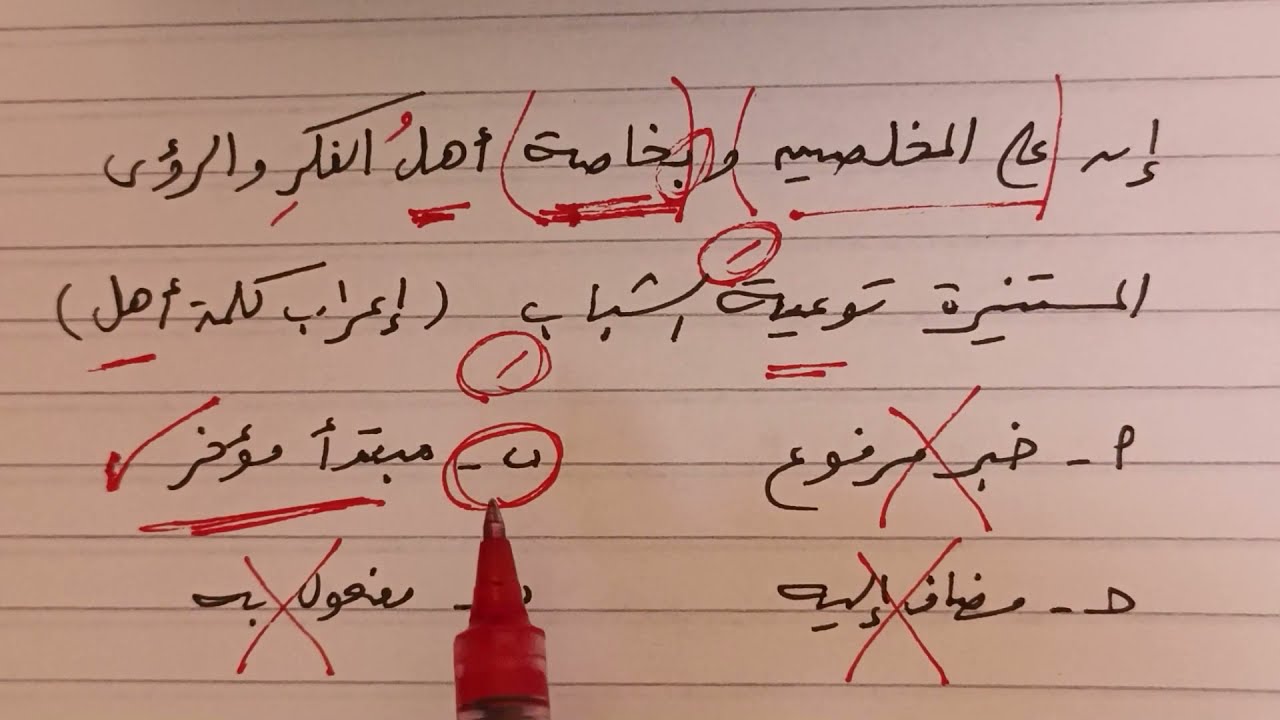 إن على المخلصين وبخاصة أهلُ الفكرِ والرؤى
المستنيرة توعية الشباب (إعراب كلمة أهل)
أ - خبر مرفوع ب - مبتدأ مؤخر
ج - مضاف إليه د - مفعول به